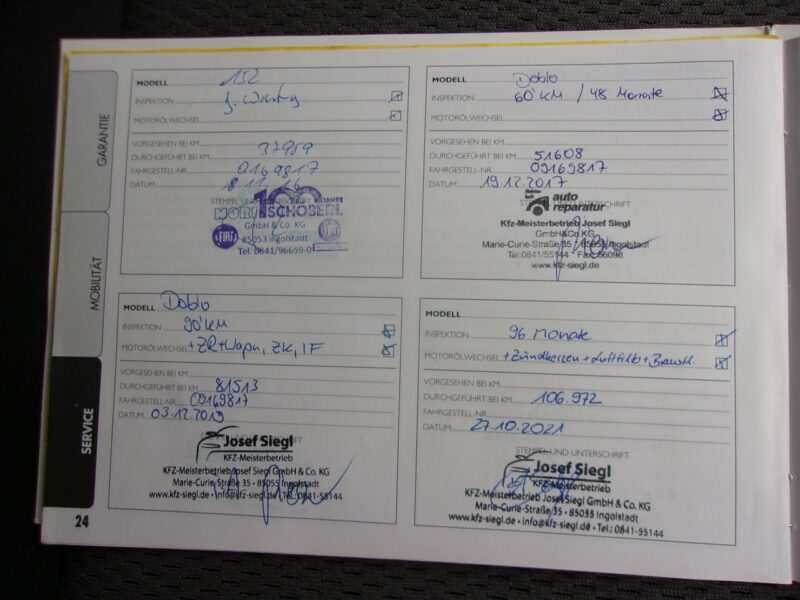 GARANTIE
MOBILITÄT
SERVICE
MODELL 152
INSPEKTION J. Wartung
MOTORÖLWECHSEL
VORGESEHEN BEI KM
DURCHGEFÜHRT BEI KM 37959
FAHRGESTELL-NR. 0169817
DATUM 8.11.16
STEMPEL UND UNTERSCHRIFT
100 JAHRE
SCHÖBERL
GmbH & Co. KG
FIAT 85053 Ingolstadt
Tel. 0841/96659-0
MODELL Doblo
INSPEKTION 60'KM / 48 Monate
MOTORÖLWECHSEL
VORGESEHEN BEI KM
DURCHGEFÜHRT BEI KM 51608
FAHRGESTELL-NR. 09169817
DATUM 19.12.2017
auto
reparatur
Kfz-Meisterbetrieb Josef Siegl
GmbH&Co. KG
Marie-Curie-Straße 35 · 85055 Ingolstadt
Tel: 0841/55144 · Fax: 56098
www.kfz-siegl.de
MODELL Doblo
INSPEKTION 90'KM
MOTORÖLWECHSEL + ZR+Wapu, ZK, IF
VORGESEHEN BEI KM
DURCHGEFÜHRT BEI KM 81513
FAHRGESTELL-NR. 09169817
DATUM 03.12.2019
Josef Siegl
KFZ-Meisterbetrieb
KFZ-Meisterbetrieb Josef Siegl GmbH & Co. KG
Marie-Curie-Straße 35 · 85055 Ingolstadt
www.kfz-siegl.de · info@kfz-siegl.de · Tel.: 0841-55144
MODELL
INSPEKTION 96 Monate
MOTORÖLWECHSEL + Zündkerzen + Luftfilter + Bremsfl.
VORGESEHEN BEI KM
DURCHGEFÜHRT BEI KM 106.972
FAHRGESTELL-NR.
DATUM 27.10.2021
STEMPEL UND UNTERSCHRIFT
Josef Siegl
KFZ-Meisterbetrieb
KFZ-Meisterbetrieb Josef Siegl GmbH & Co. KG
Marie-Curie-Straße 35 · 85055 Ingolstadt
www.kfz-siegl.de · info@kfz-siegl.de · Tel.: 0841-55144
24